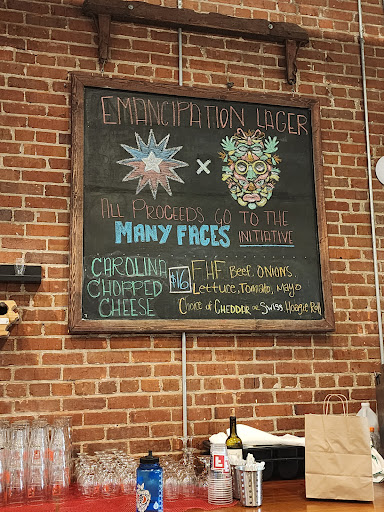 EMANCIPATION LAGER
X
ALL PROCEEDS GO TO THE
MANY FACES INITIATIVE
CAROLINA
CHOPPED
CHEESE
$16
FHF Beef, ONIONS,
Lettuce, Tomato, Mayo
Choice of CHEDDAR or Swiss Hoagie Roll